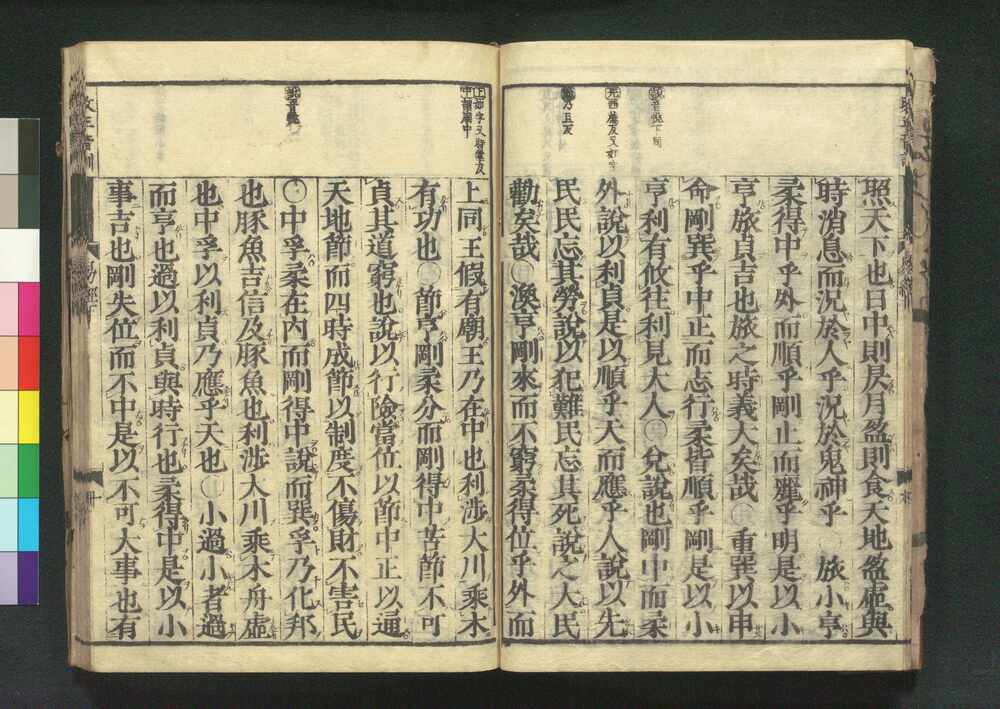 照天下也日中則昃月盈則食天地盈虛與
時消息而況於人乎況於鬼神乎　旅小亨
柔得中乎外而順乎剛止而麗乎明是以小
亨旅貞吉也旅之時義大矣哉　重巽以申
命剛巽乎中正而志行柔皆順乎剛是以小
亨利有攸往利見大人　兌說也剛中而柔
外說以利貞是以順乎天而應乎人說以先
民民忘其勞說以犯難民忘其死說之大民
勸矣哉　渙亨剛來而不窮柔得位乎外而
上同王假有廟王乃在中也利涉大川乘木
有功也　節亨剛柔分而剛得中苦節不可
貞其道窮也說以行險當位以節中正以通
天地節而四時成節以制度不傷財不害民
中孚柔在內而剛得中說而巽孚乃化邦
也豚魚吉信及豚魚也利涉大川乘木舟虛
也中孚以利貞乃應乎天也　小過小者過
而亨也過以利貞與時行也柔得中是以小
事吉也剛失位而不中是以不可大事也有
易經